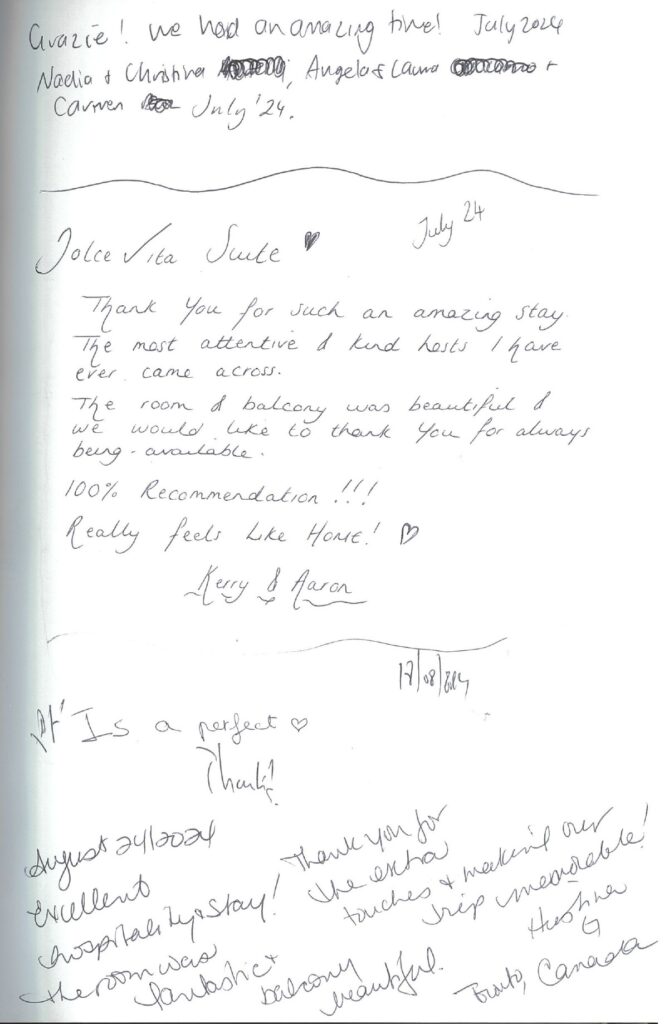 Grazie! we had an amazing time! July 2024
Nadia & Christina, Angela & Laura +
Carmen July '24.
Dolce Vita Suite ♥ July 24
Thank You for such an amazing stay.
The most attentive & kind hosts I have
ever came across.
The room & balcony was beautiful &
we would like to thank You for always
being available.
100% Recommendation!!!
Really feels Like Home! ♡
Kerry & Aaron
Is a perfect ♡
August 24/2024
Excellent
hospitality & stay!
the room was
fantastic +
balcony
beautiful.
Thank you for
the extra
touches & making our
trip memorable!
Toronto, Canada